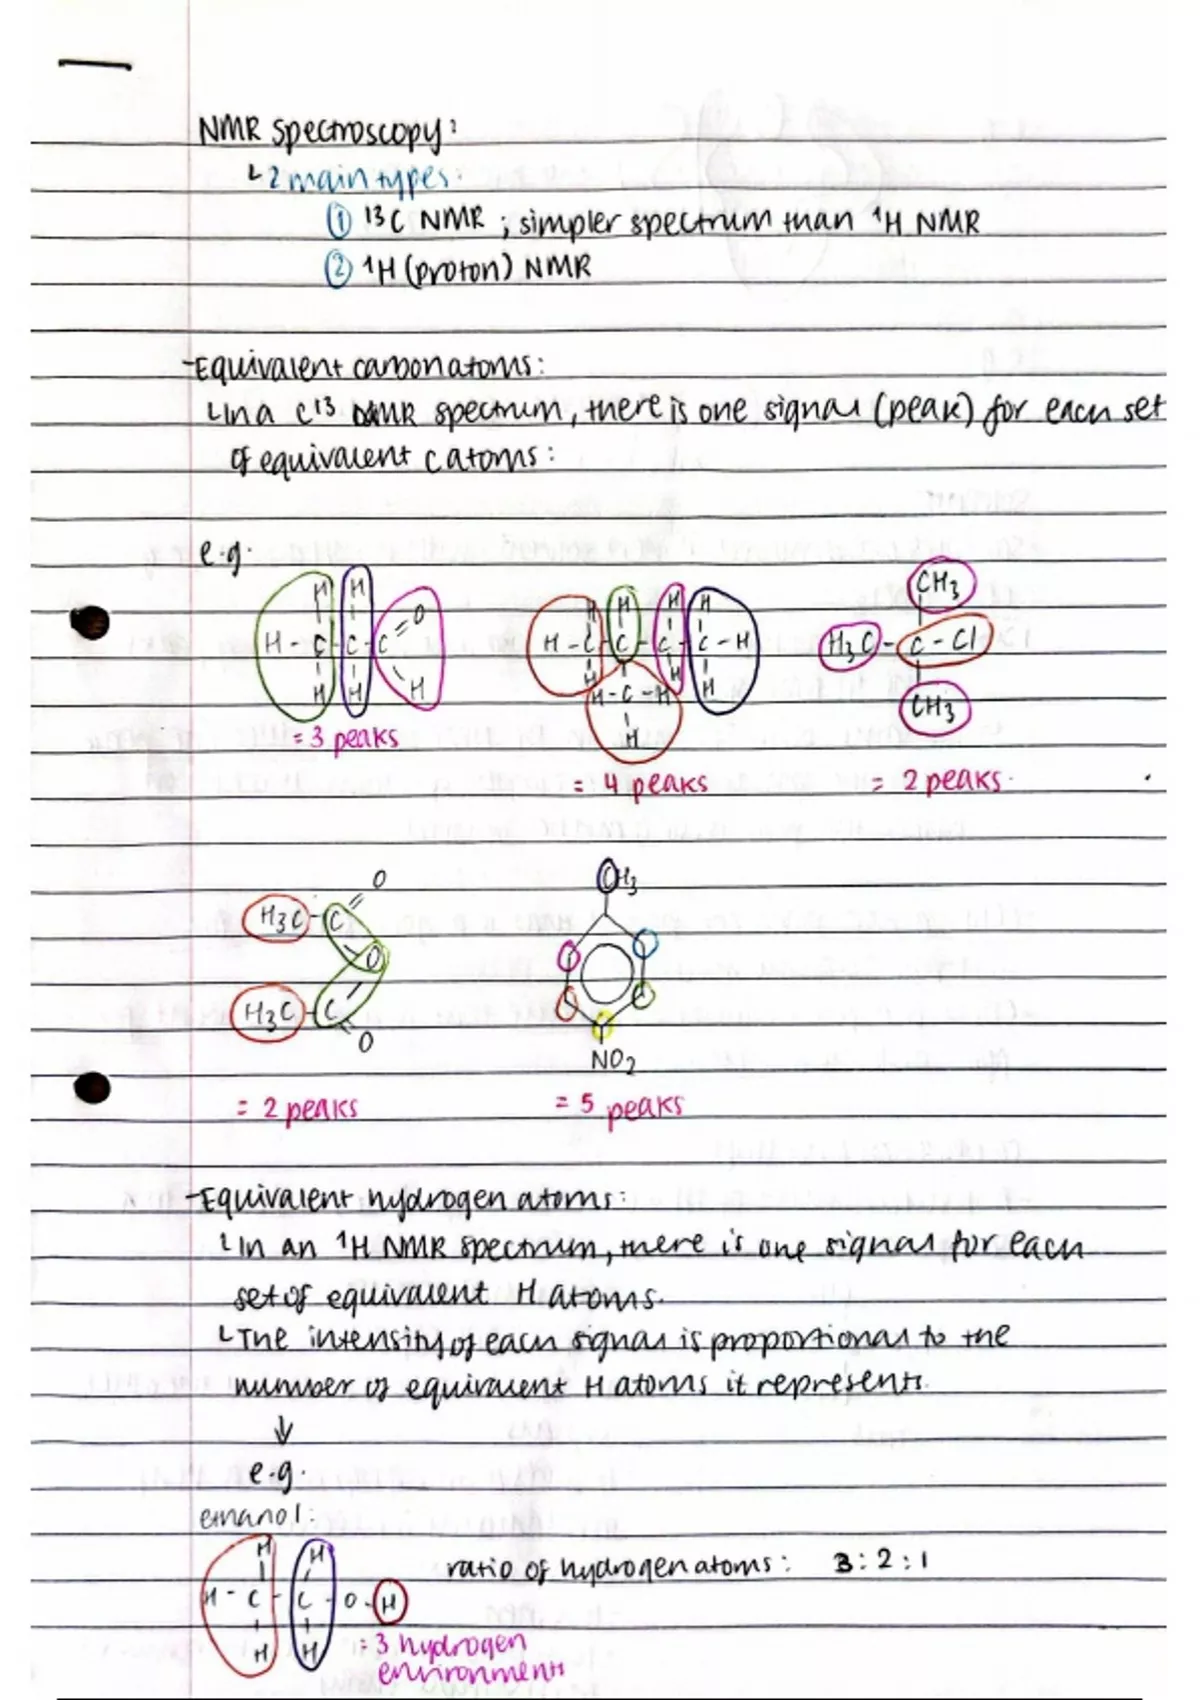 NMR Spectroscopy:
↳ 2 main types:
① ¹³C NMR ; simpler spectrum than ¹H NMR
② ¹H (proton) NMR
- Equivalent carbon atoms:
↳ In a C¹³ NMR spectrum, there is one signal (peak) for each set
of equivalent C atoms:
e.g.
H H O
H - C - C - C
H H H
= 3 peaks
H H H H
H - C - C - C - C - H
H H H
H - C - H
H
= 4 peaks
CH3
H3C - C - Cl
CH3
= 2 peaks.
O
H3C - C
O
H3C - C
O
= 2 peaks
CH3
NO2
= 5 peaks
- Equivalent hydrogen atoms:
↳ In an ¹H NMR spectrum, there is one signal for each
set of equivalent H atoms.
↳ The intensity of each signal is proportional to the
number of equivalent H atoms it represents.
↓
e.g.
ethanol:
H H
H - C - C - O - H
H H
ratio of hydrogen atoms: 3 : 2 : 1
= 3 hydrogen
environments